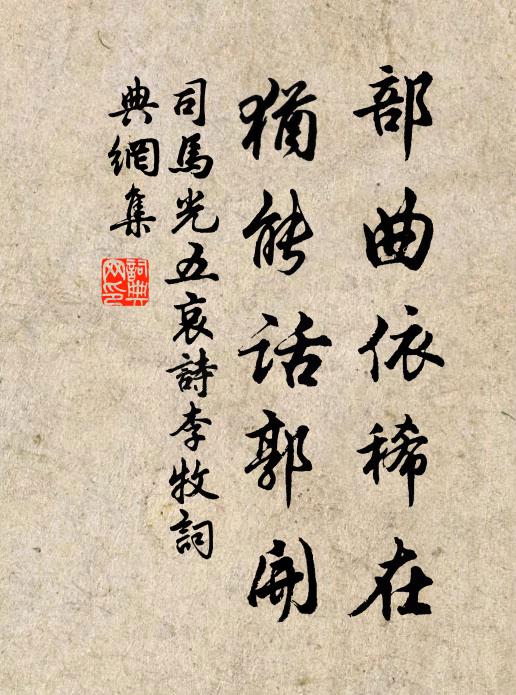 部曲依稀在
猶能話郭開
司馬光五哀詩李牧詞
典網集
詞典
网印